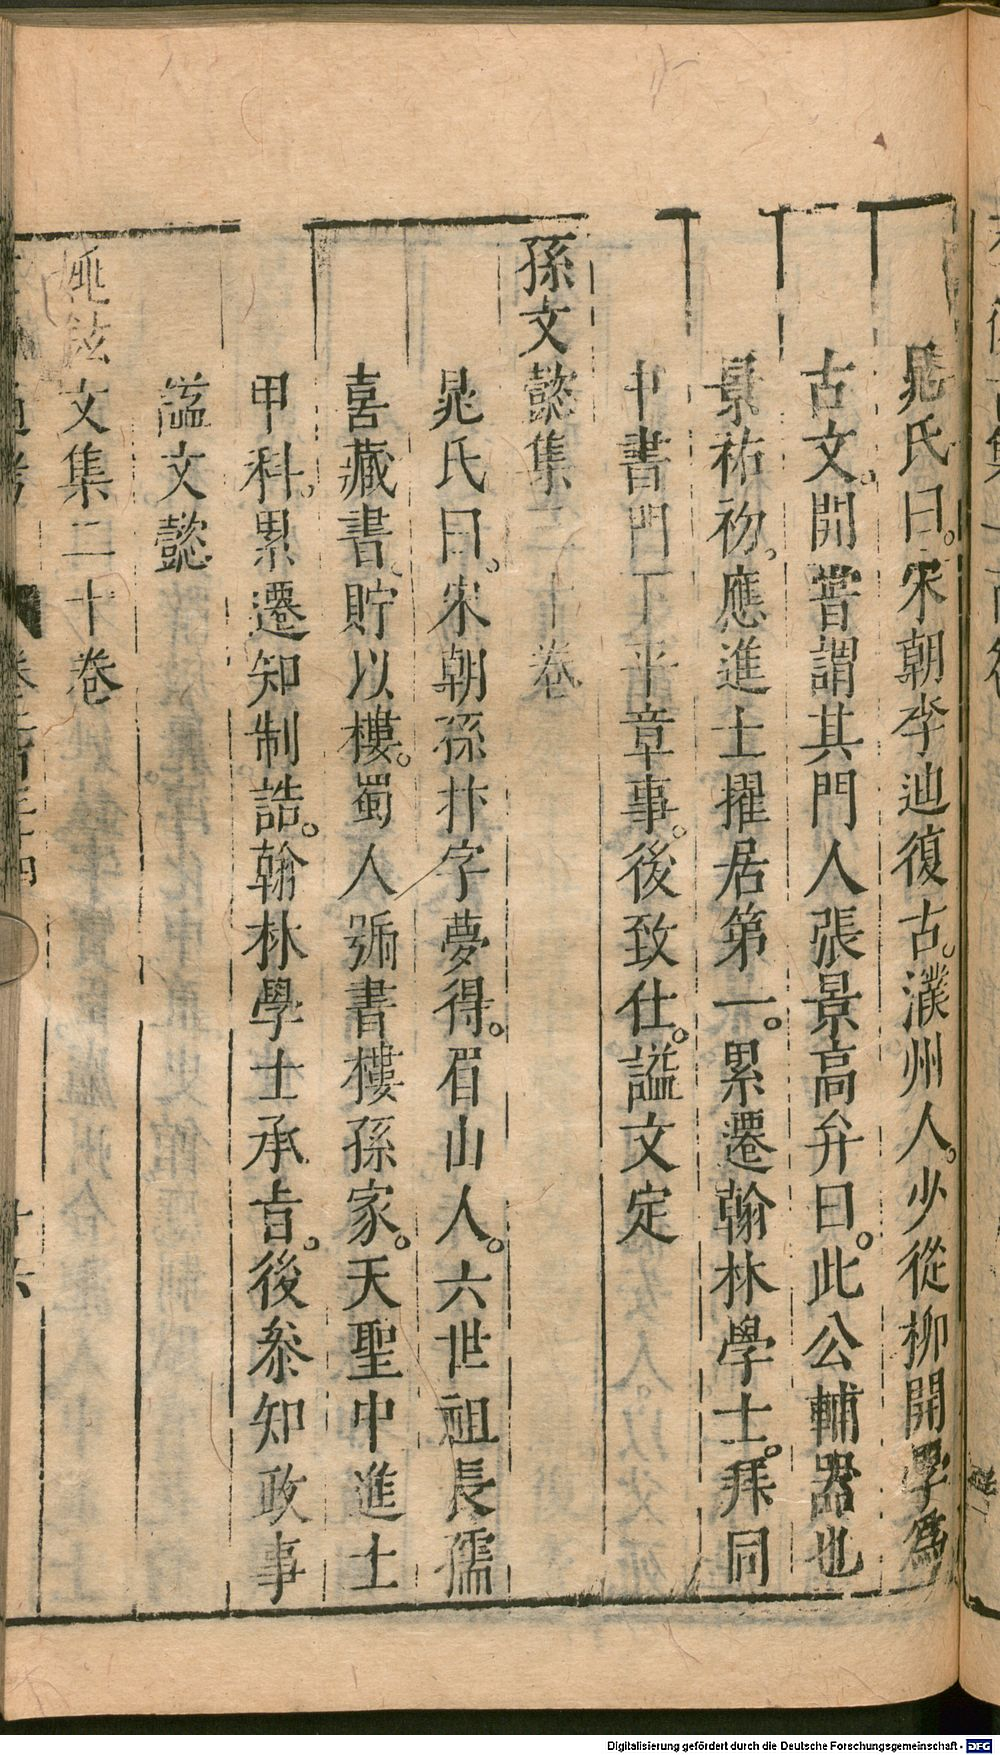 晁氏曰宋朝李迪復古濮州人少從柳開學爲
古文開嘗謂其門人張景高弁曰此公輔器也
景祐初應進士擢居第一累遷翰林學士拜同
中書門下平章事後致仕謚文定
孫文懿集二十卷
晁氏曰宋朝孫抃字夢得眉山人六世祖長孺
喜藏書貯以樓蜀人號書樓孫家天聖中進士
甲科累遷知制誥翰林學士承旨後叅知政事
謚文懿
姚鉉文集二十卷
Digitalisierung gefördert durch die Deutsche Forschungsgemeinschaft - DFG